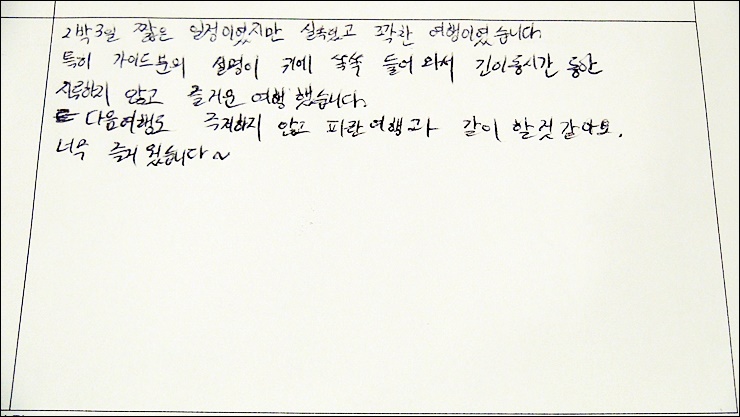 2박3일 짧은 일정이였지만 실속있고 꽉찬 여행이였습니다.
특히 가이드분의 설명이 귀에 쏙쏙 들어와서 긴이동시간 동안
지루하지 않고 즐거운 여행 했습니다.
다음여행도 주저하지 않고 파란여행과 같이 할것 같아요.
너무 즐거웠습니다~